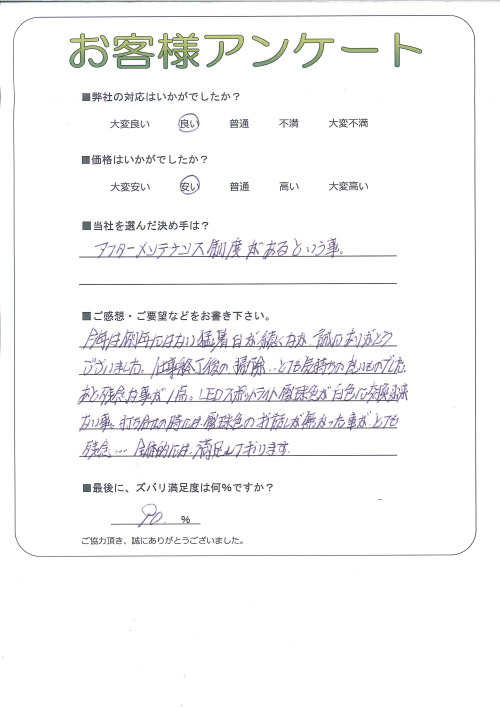 お客様アンケート
■弊社の対応はいかがでしたか？
大変良い 良い 普通 不満 大変不満
■価格はいかがでしたか？
大変安い 安い 普通 高い 大変高い
■当社を選んだ決め手は？
アフターメンテナンス制度があるという事。
■ご感想・ご要望などをお書き下さい。
今年は例年にはない猛暑日が続くなか、誠にありがとう
ございました。仕事終了後の掃除‥とても気持ちの良いものでした。
あと残念な事が1点。LEDスポットライト電球色が白色に交換出来
ない事。打ち合せの時には電球色のお話しが無かった事がとても
残念…. 全体的には、満足しております。
■最後に、ズバリ満足度は何％ですか？
90 ％
ご協力頂き、誠にありがとうございました。